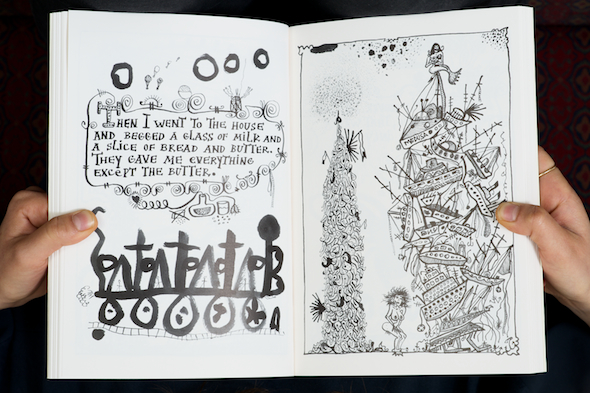 THEN I WENT TO THE HOUSE
AND BEGGED A GLASS OF MILK AND
A SLICE OF BREAD AND BUTTER.
THEY GAVE ME EVERYTHING
EXCEPT THE BUTTER.